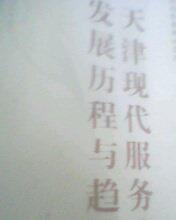 天津现代服务
发展历程与趋